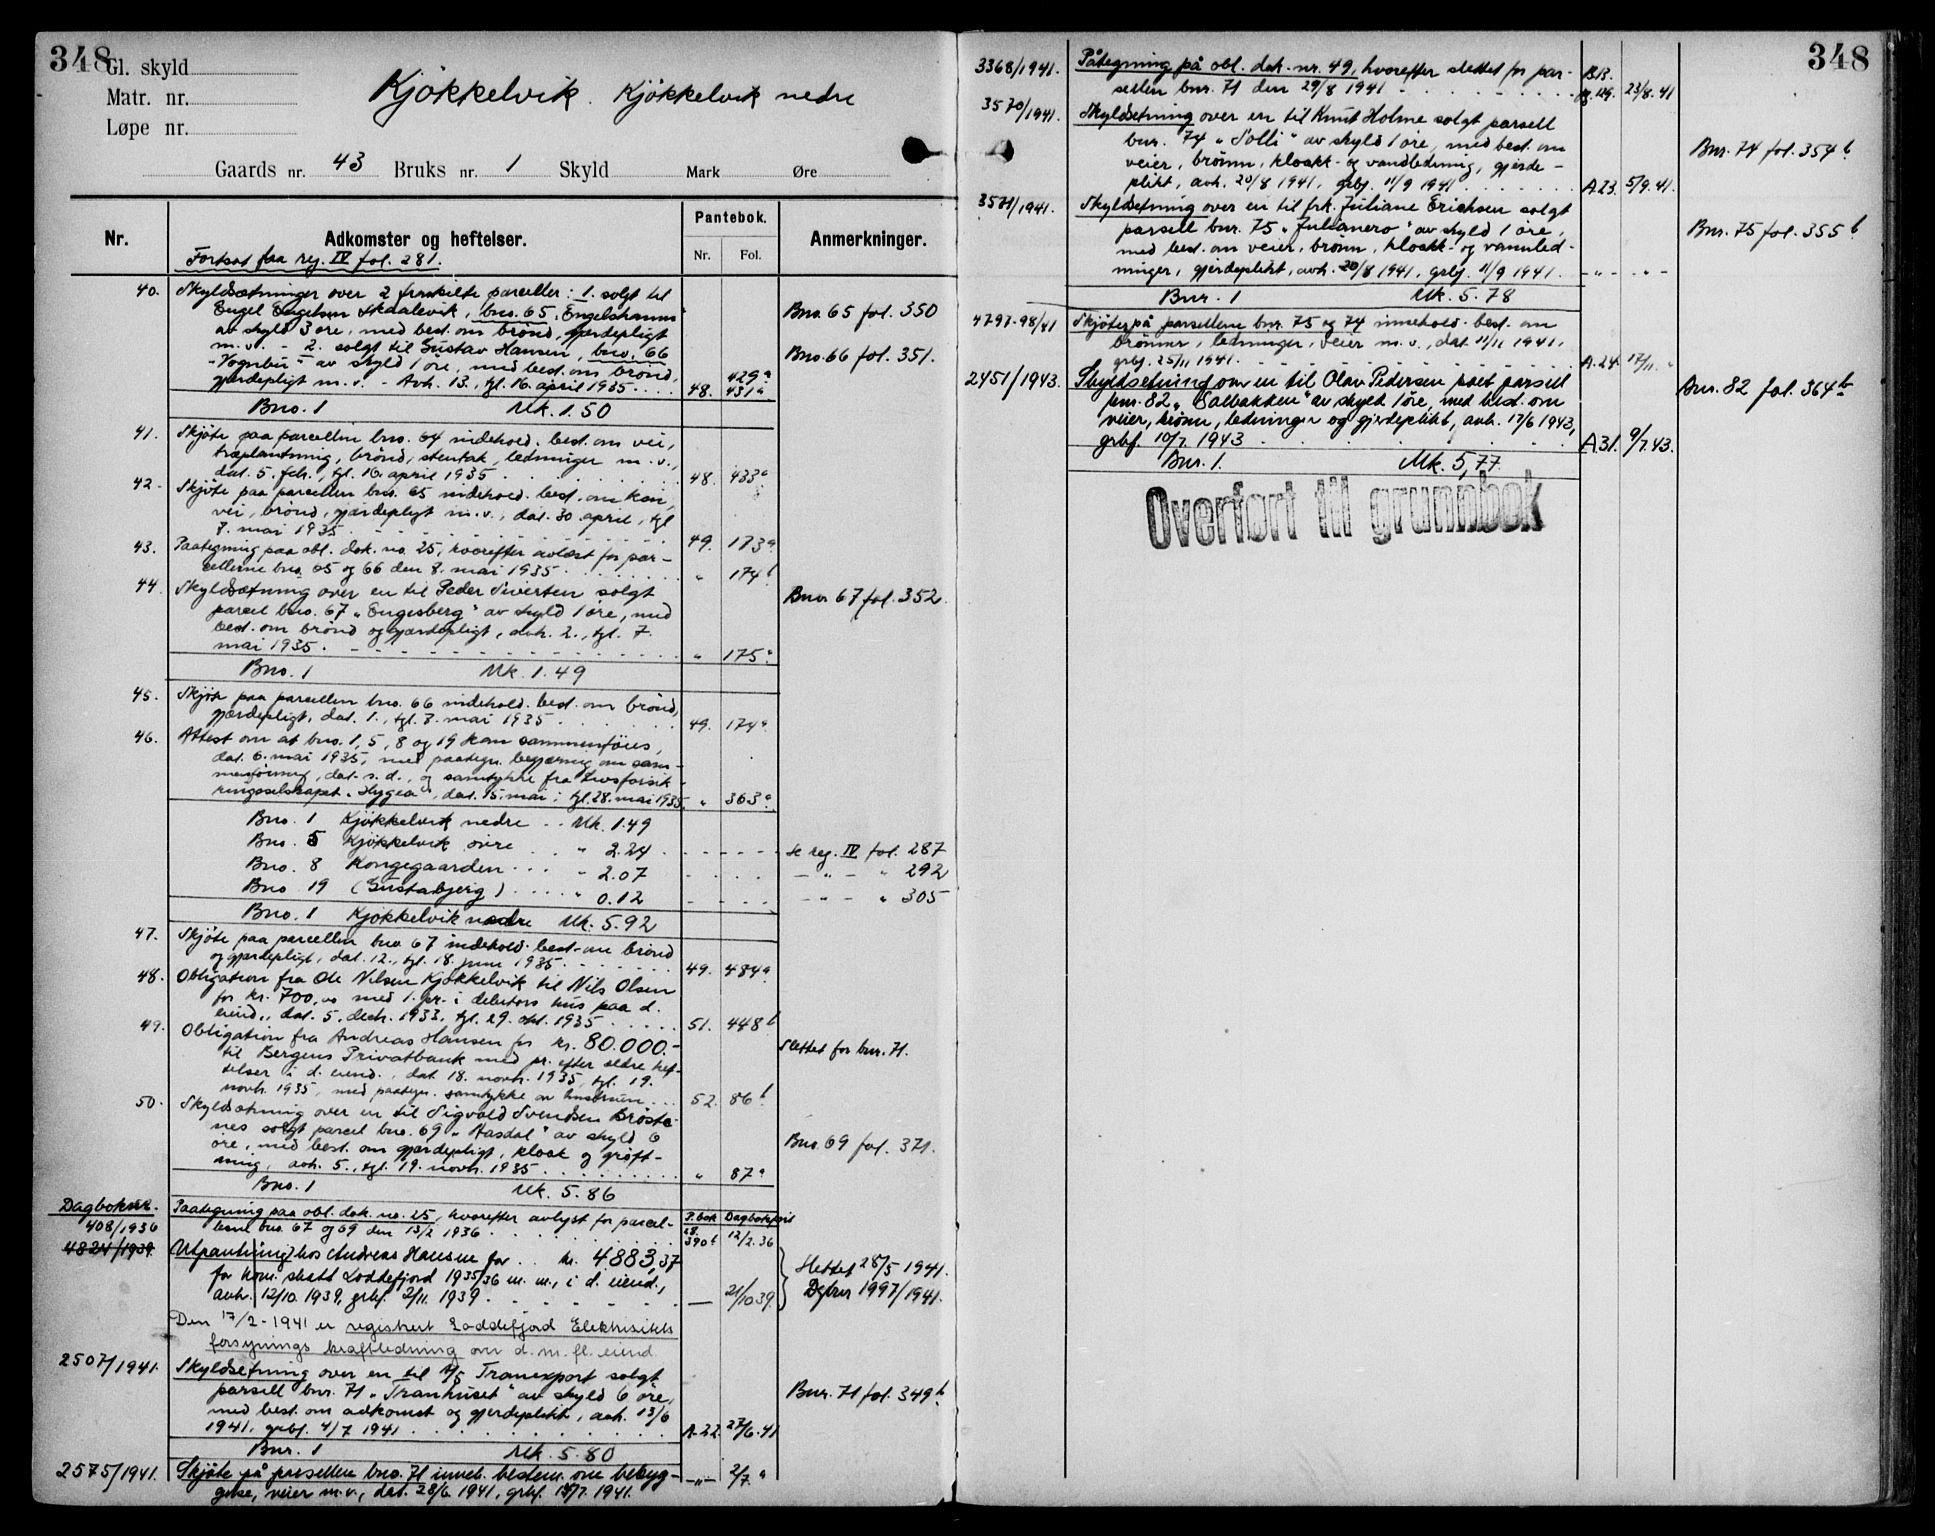 348
Gl. skyld
Matr. nr.
Løpe nr.
Kjøkkelvik. Kjøkkelvik nedre
Gaards nr. 43 Bruks nr. 1 Skyld Mark Øre
Nr. Adkomster og hefteler. Pantebok. Anmerkninger.
Nr. Fol.
Fortsat fra reg. IV fol. 281.
40. Skyldsætninger over 2 fraskilte parceller: 1. solgt til
Engel Engelsen Skaalevik, bno. 65, Engelshamn Bno. 65 fol. 350
av skyld 3 øre, med best. om brønd, gjærdepligt
m.v. - 2. solgt til Gustav Hansen, bno. 66 Bno. 66 fol. 351.
"Vognbu" av skyld 1 øre, med best. om brønd, 429a
gjærdepligt m.v. - Avh. 13., tgl. 16. april 1935 48. 431a
Bno. 1 Mk. 1.50
41. Skjøte paa parcellen bno. 64 indehold. best. om vei,
træplantning, brønd, stentak, ledninger m.v.,
dat. 5. febr., tgl. 16. april 1935 48. 433a
42. Skjøte paa parcellen bno. 65 indehold. best. om
vei, brønd, gjærdepligt m.v., dat. 30. april, tgl
7. mai 1935 49. 173a.
43. Paategning paa obl. dok. no. 25, hvorefter avløst for par-
cellerne bno. 65 og 66 den 8. mai 1935 " 174b
44. Skyldsætning over en til Peder Sivertsen solgt Bno 67 fol. 352.
parcel bno. 67 "Engesberg" av skyld 1 øre, med
best. om brønd og gjærdepligt, avh. 2., tgl. 7.
mai 1935. " 175a.
Bno. 1 Mk. 1.49
45. Skjøte paa parcellen bno. 66 indehold. best. om brønd,
gjærdepligt, dat. 1., tgl. 8. mai 1935 49. 174a
46. Attest om at bno. 1, 5, 8 og 19 kan sammenføies,
dat. 6. mai 1935, med paategn. begjæring om sam-
menføining, dat. s.d., og samtykke fra Livsforsik-
ringsselskapet "Hygea", dat. 15. mai, tgl. 28. mai 1935. " 363a.
Bno. 1 Kjøkkelvik nedre Mk. 1.49
Bno. 5 Kjøkkelvik øvre " 2.24 se reg. IV fol. 287
Bno. 8 Kongegaarden " 2.07 - " - " 292
Bno 19 (Gustabjerg) " 0.12 - " - " 305
Bno. 1 Kjøkkelvik nedre Mk. 5.92
47. Skjøte paa parcellen bno 67 indehold. best. om brønd
og gjærdepligt, dat. 12., tgl. 18. juni 1935 49. 484a
48. Obligation fra Ole Nilsen Kjøkkelvik til Nils Olsen
for kr. 700,00 med 1. pr. i debitors hus paa d.
eiend., dat. 5. decbr. 1933, tgl. 29. okt. 1935 51. 448b
49. Obligation fra Andreas Hansen for kr. 80.000.- Slettet for bnr. 71.
til Bergens Privatbank med pr. efter ældre hef-
telser i d. eiend., dat. 18. novbr. 1935, tgl. 19.
novbr. 1935, med paategn. samtykke av hustruen 52. 86b.
50. Skyldsætning over en til Sigvald Svendsen Brøsta-
nes solgt parcel bno. 69 "Aasdal" av skyld 6 Bno 69 fol. 371.
øre, med best. om gjærdepligt, kloak og grøft-
ning, avh. 5., tgl. 19. novbr. 1935 " 87a
Bno. 1 Mk. 5.86
Dagboksnr. Paategning paa obl. dok. no. 25, hvorefter avlyst for parcel- P.bok Dagbokført
408/1936 lene bno. 67 og 69 den 13/2 1936 28. 390b 12/2.36
4824/1939. Utpantning hos Andreas Hansen for kr. 4.883,37 Slettet 28/5 1941.
for kom. skatt Loddefjord 1935/36 m.m., i d. eiend., Dgbnr 1997/1941.
avh. 12/10 1939, grbf. 2/11 1939. 21/10 39.
Den 17/2-1941 er registrert Loddefjord Elektrisitets
forsynings kraftledning over d. m. fl. eiend
2507/1941. Skyldsetning over en til A/S Tranexport solgt
parsell bnr. 71 "Tranhuset" av skyld 6 øre, Bnr. 71 fol. 349b.
med best. om adkomst og gjerdeplikt, avh. 13/6
1941, grbf. 4/7 1941 A.22 27/6.41
Bnr. 1 Mk. 5.80
2575/1941. Skjøte på parsellen bno. 71 inneh. bestem. om bebyg- - " - 2/7 "
gelse, veier m.v., dat. 28/6 1941, grbf. 1941.
348
3368/1941. Påtegning på obl. dok. nr. 49, hvorefter slettet for par- B.B.
sellen bnr. 71 den 29/8 1941 23/8.41
3570/1941. Skyldsetning over en til Knut Holme solgt parsell
bnr. 74 "Solli" av skyld 1 øre, med best. om Bnr. 74 fol. 354b.
veier, brønn, kloakk- og vandledning, gjerde-
plikt, avh. 20/8 1941, grbf. 11/9 1941 A.23. 5/9.41.
3571/1941. Skyldsetning over en til frk. Juliane Erichsen solgt
parsell bnr. 75 "Julianero" av skyld 1 øre, Bnr. 75 fol. 355b.
med best. om veier, brønn, kloakk- og vannled-
ninger, gjerdeplikt, avh. 20/8 1941, grbf. 11/9 1941. - " - - " -
Bnr. 1 Mk. 5.78
4797-98/41 Skjøter på parsellene bnr. 75 og 74 innehold. best. om
brønner, ledninger, veier m.v., dat. 11/11 1941,
grbf. 25/11 1941. A.24. 17/11. "
2451/1943. Skyldsetning over en til Olav Pedersen solgt parsell Bnr. 82 fol. 364b
bnr. 82 "Solbakken" av skyld 1 øre, med best. om
veier, brønn, ledninger og gjerdeplikt, avh. 17/6 1943,
grbf. 10/7 1943 A.31. 9/7.43.
Bnr. 1. Mk. 5,77.
Overført til grunnbok